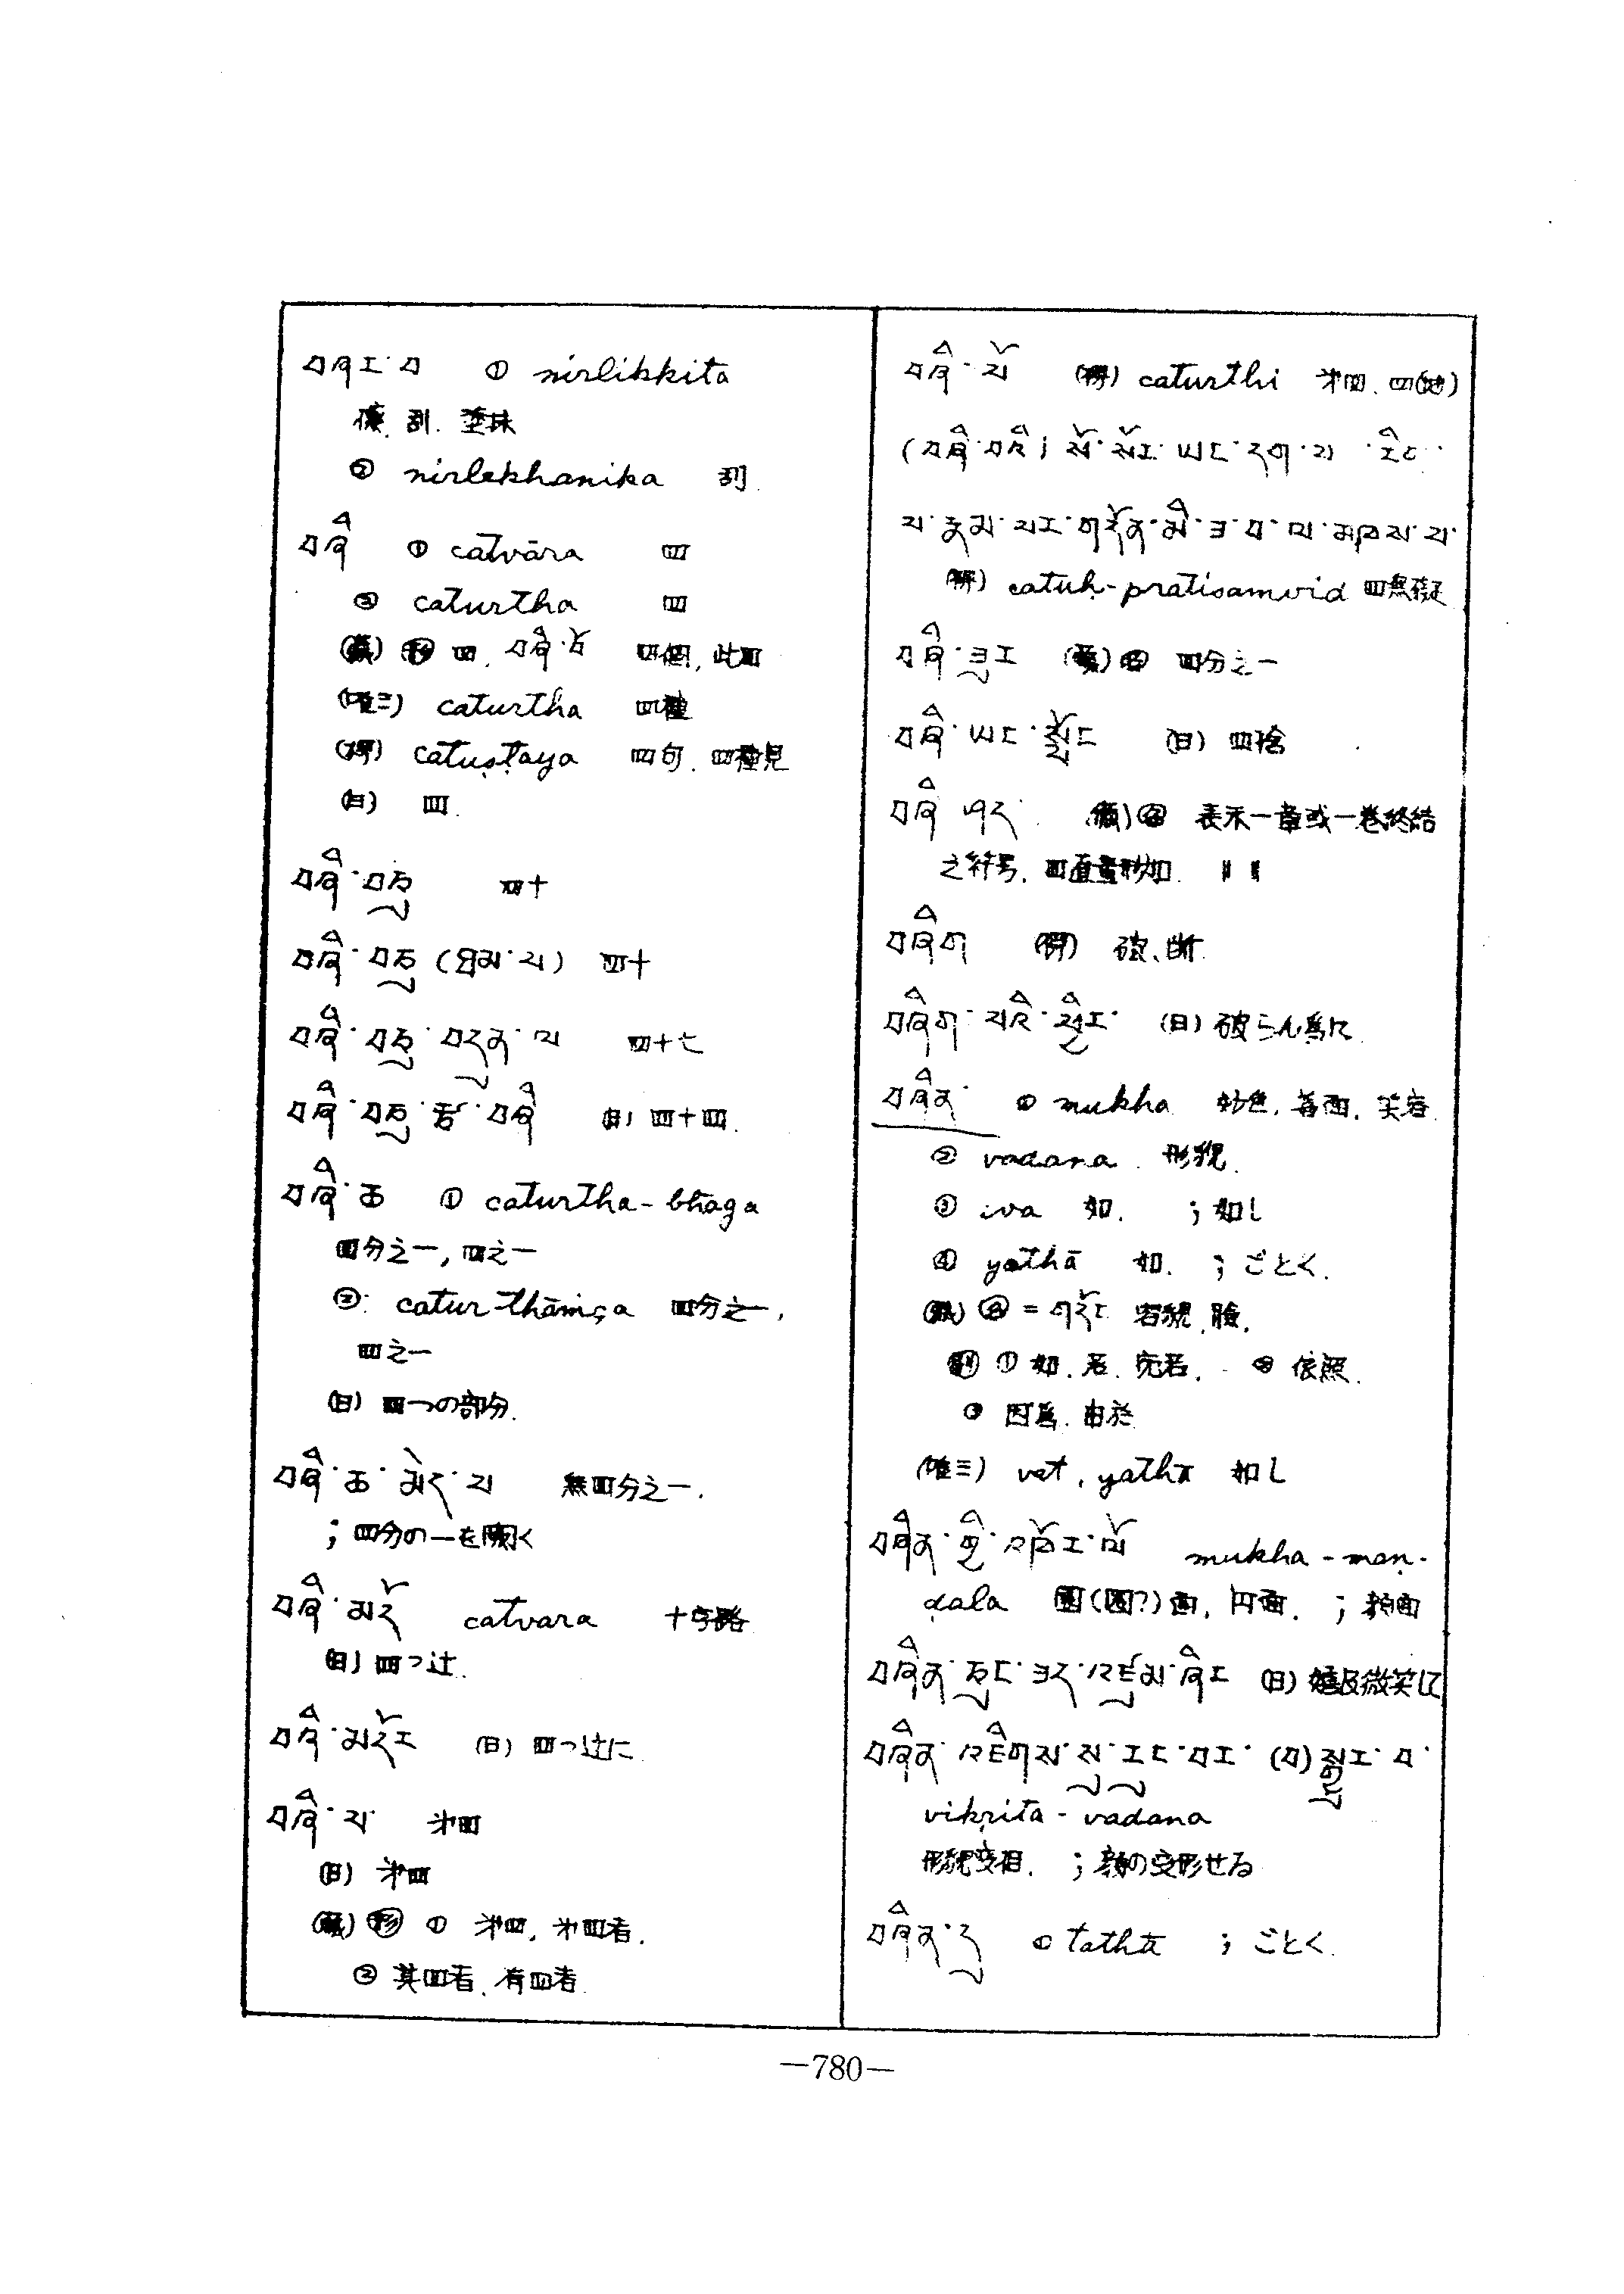 བཞར་བ ① nirlikkita
刮. 塗抹
② nirlekhanika 刮
བཞི ① catvāra 四
② caturtha 四
(蔵) 四, བཞི་པོ 四個, 此四
(唯三) caturtha 四種
catuṣṭaya 四句. 四種見
(日) 四.
བཞི་བཅུ 四十
བཞི་བཅུ (ཐམ་པ) 四十
བཞི་བཅུ་བདུན་པ 四十七
བཞི་བཅུ་རྩ་བཞི (日) 四十四.
བཞི་ཆ ① caturtha-bhāga
四分之一, 四之一
②: caturthāṁça 四分之一,
四之一
(日) 四つの部分.
བཞི་ཆ་མེད་པ 無四分之一.
; 四分の一を欠く
བཞི་མདོ catvara 十字路
(日) 四つ辻.
བཞི་མདོར (日) 四つ辻に
བཞི་པ 第四
(日) 第四
(蔵) 形 ① 第四, 第四者.
② 其四者, 有四者.
བཞི་པོ caturthi 第四、四(地)
(བཞི་བའི; སོ་སོར་ཡང་དག་པ་རིང་
པ་རྣམ་པར་གཏོན་མི་ཟ་བ་ལ་མཁས་པ་
catuḥ-pratisamvid 四無礙
བཞི་ཟུར (蔵) 名 四分之一
བཞི་ཡང་སྤོང (日) 四捨
བཞི་ཤད (蔵) 名 表示一章或一卷終結
之符号, 四直畫形如. ॥ ॥
བཞིག 破、断.
བཞིག་པའི་ཕྱིར་ (日) 破らん為に
བཞིན་ ① mukha 妙色, 善面, 笑容.
② vadana. 形貌.
③ iva 如. ; 如し
④ yathā 如. ; ごとく.
(蔵) 名 = གདོང 容貌, 臉.
副 ① 如. 若. 宛若. ② 依照.
③ 因為. 由於
(唯三) vat, yathā 如し
བཞིན་གྱི་འཁོར་ལོ mukha-maṇ-
ḍala 圓(圓?)面, 円面. ; 拍面
བཞིན་ཅུང་ཟད་འཛུམ་ཞིང (日) 嬉及微笑して
བཞིན་འཇིགས་སུ་རུང་བར་ (བ)སྒྱུར་བ་
vikṛita-vadana
形貌変相. ; 顔の変形せる
བཞིན་དུ ① tathā ; ごとく.
—780—